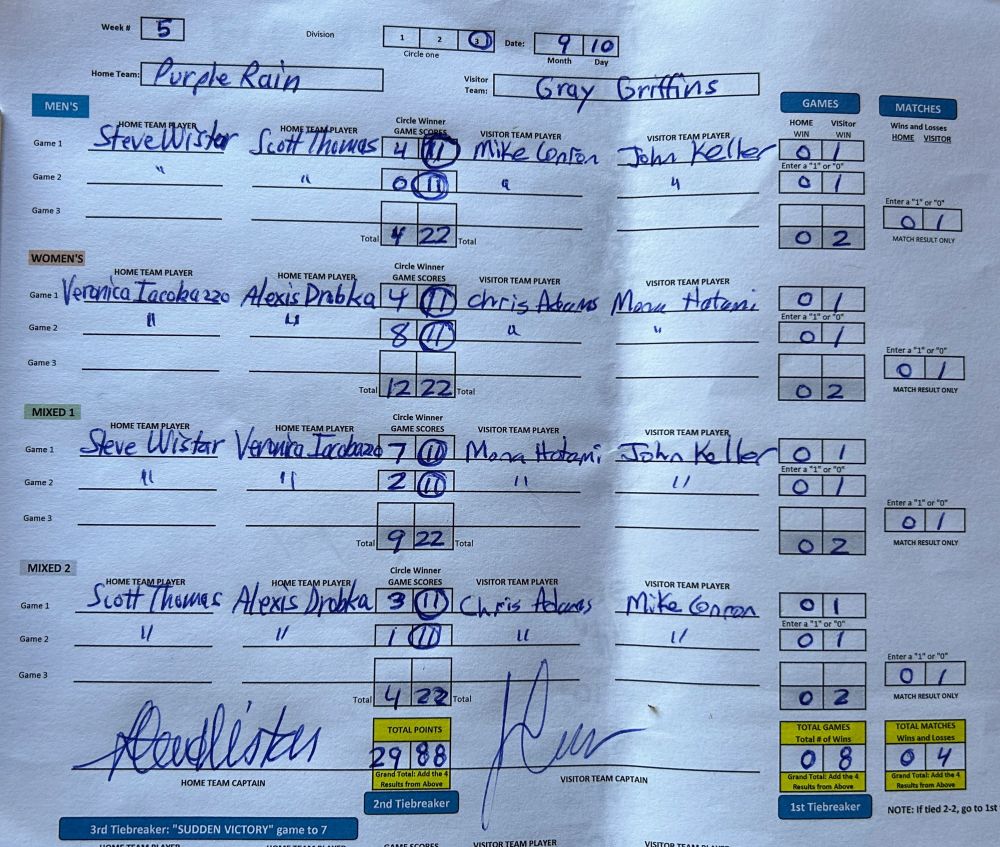 Week # 5 Division 1 2 3 Date: 9 10
Circle one Month Day
Home Team: Purple Rain Visitor Team: Gray Griffins
MEN'S GAMES MATCHES
HOME TEAM PLAYER HOME TEAM PLAYER Circle Winner GAME SCORES VISITOR TEAM PLAYER VISITOR TEAM PLAYER HOME WIN Visitor WIN Wins and Losses HOME VISITOR
Game 1 Steve Wistar Scott Thomas 4 11 Mike Conron John Keller 0 1
Enter a "1" or "0"
Game 2 " " 0 11 " " 0 1
Enter a "1" or "0"
Game 3 0 1
Total 4 22 Total 0 2 MATCH RESULT ONLY
WOMEN'S
HOME TEAM PLAYER HOME TEAM PLAYER Circle Winner GAME SCORES VISITOR TEAM PLAYER VISITOR TEAM PLAYER
Game 1 Veronica Iacobazzo Alexis Drobka 4 11 Chris Adams Mona Hotami 0 1
Enter a "1" or "0"
Game 2 " " 8 11 " " 0 1
Enter a "1" or "0"
Game 3 0 1
Total 12 22 Total 0 2 MATCH RESULT ONLY
MIXED 1
HOME TEAM PLAYER HOME TEAM PLAYER Circle Winner GAME SCORES VISITOR TEAM PLAYER VISITOR TEAM PLAYER
Game 1 Steve Wistar Veronica Iacobazzo 7 11 Mona Hotami John Keller 0 1
Enter a "1" or "0"
Game 2 " " 2 11 " " 0 1
Enter a "1" or "0"
Game 3 0 1
Total 9 22 Total 0 2 MATCH RESULT ONLY
MIXED 2
HOME TEAM PLAYER HOME TEAM PLAYER Circle Winner GAME SCORES VISITOR TEAM PLAYER VISITOR TEAM PLAYER
Game 1 Scott Thomas Alexis Drobka 3 11 Chris Adams Mike Conron 0 1
Enter a "1" or "0"
Game 2 " " 1 11 " " 0 1
Enter a "1" or "0"
Game 3 0 1
Total 4 22 Total 0 2 MATCH RESULT ONLY
TOTAL POINTS TOTAL GAMES Total # of Wins TOTAL MATCHES Wins and Losses
29 88 0 8 0 4
HOME TEAM CAPTAIN Grand Total: Add the 4 Results from Above VISITOR TEAM CAPTAIN Grand Total: Add the 4 Results from Above Grand Total: Add the 4 Results from Above
2nd Tiebreaker 1st Tiebreaker NOTE: If tied 2-2, go to 1st
3rd Tiebreaker: "SUDDEN VICTORY" game to 7
HOME TEAM PLAYER HOME TEAM PLAYER GAME SCORES VISITOR TEAM PLAYER VISITOR TEAM PLAYER